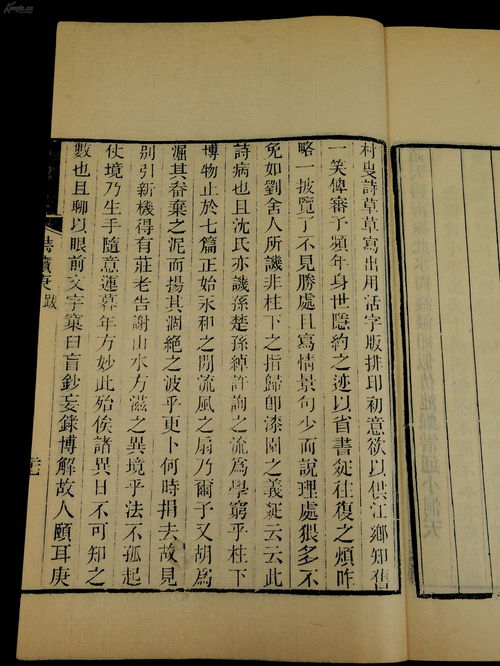 村叟詩草草寫出用活字版排印初意欲以供江鄉知舊
一笑俾審予頻年身世隱約之迹以省書疏往復之煩昨
略一披覽了不見勝處且寫情景句少而說理處猥多不
免如劉舍人所譏非柱下之指歸即漆園之義疏云云此
詩病也且沈氏亦譏孫楚孫綽許詢之流爲學窮乎柱下
博物止於七篇正始永和之間流風之扇乃爾予又胡爲
淈其畚棄之泥而揚其凋絕之波乎更卜何時捐去故見
別引新機得有莊老告謝山水方滋之異境乎法不孤起
仗境乃生手隨意運暮年方妙此殆俟諸異日不可知之
數也且聊以眼前文字稾曰盲鈔妄錄博解故人頤耳庚
詩賸庚 跋